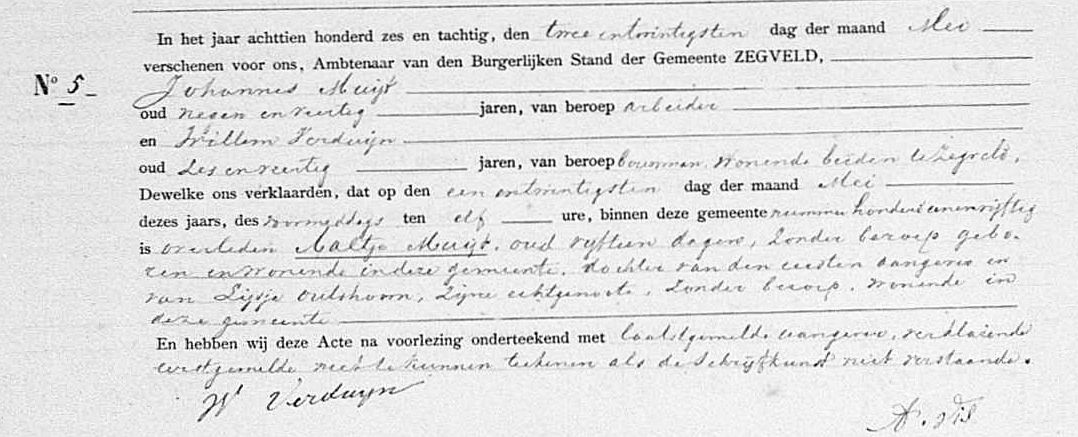 In het jaar achttien honderd zes en tachtig, den twee entwintigsten dag der maand Mei
verschenen voor ons, Ambtenaar van den Burgerlijken Stand der Gemeente ZEGVELD,
N° 5
Johannes Muijt
oud negen enveertig jaren, van beroep arbeider
en Willem Verduijn
oud zes enveertig jaren, van beroep bouwman, wonende beiden te Zegveld,
Dewelke ons verklaarden, dat op den een entwintigsten dag der maand Mei
dezes jaars, des voormiddags ten elf ure, binnen deze gemeente nummer honderd eenenvijftig
is overleden Aaltje Muijt, oud vijftien dagen, zonder beroep gebo-
ren en wonende in deze gemeente, dochter van den eersten aangever en
van Lijsje Oulshoorn, zijne echtgenoote, zonder beroep, wonende in
deze gemeente
En hebben wij deze Acte na voorlezing onderteekend met laatstgemelde aangever, verklarende
eerstgemelde niet te kunnen teekenen als de schrijfkunst niet verstaande.
W Verduyn
A. Vis